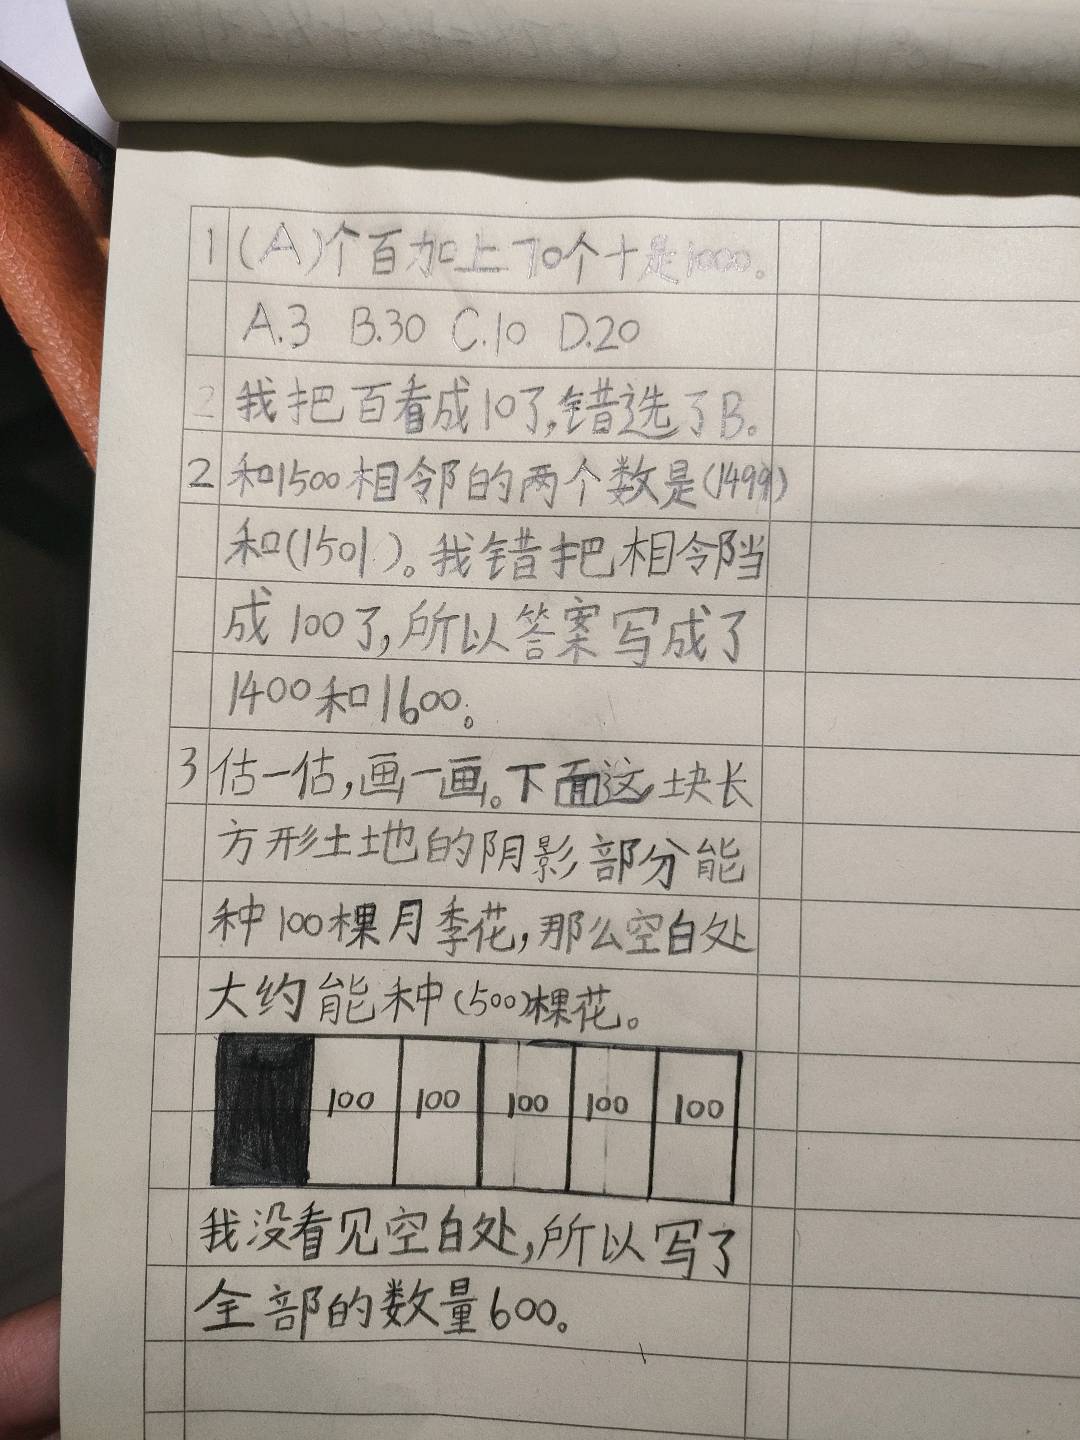 1 (A)个百加上70个十是1000。
A.3 B.30 C.10 D.20
2 我把百看成10了,错选了B。
2 和1500相邻的两个数是(1499)
和(1501)。我错把相邻当
成100了,所以答案写成了
1400和1600。
3 估一估,画一画。下面这块长
方形土地的阴影部分能
种100棵月季花,那么空白处
大约能种(500)棵花。
100 100 100 100 100
我没看见空白处,所以写了
全部的数量600。